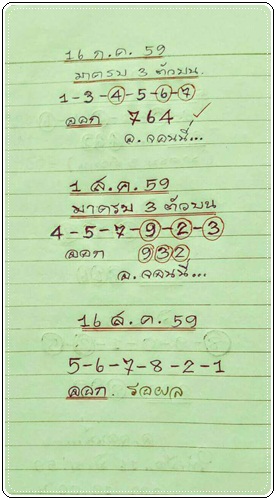 16 ก.ค. 59
มาครบ 3 ตัวบน
1-3-4-5-6-7
ออก 764
อ.จอนนี่...
1 ส.ค. 59
มาครบ 3 ตัวบน
4-5-7-9-2-3
ออก 932
อ.จอนนี่...
16 ส.ค. 59
5-6-7-8-2-1
ออก. รอผล